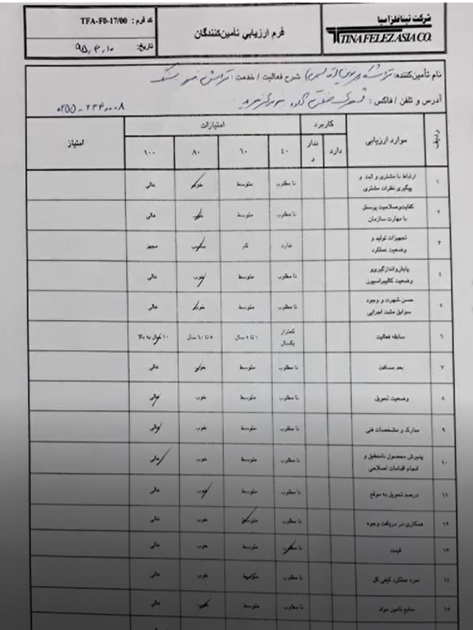 شرکت تینا فلز آسیا
TINAFELEZ ASIA CO.
فرم ارزیابی تأمین‌کنندگان
کد فرم : TFA-F0-17/00
تاریخ:
نام تأمین‌کننده: شرح فعالیت / خدمت:
آدرس و تلفن / فاکس:
ردیف موارد ارزیابی کاربرد امتیازات امتیاز
دارد ندارد ۴۰ ۶۰ ۸۰ ۱۰۰
۱ ارتباط با مشتری و ثبت و پیگیری نظرات مشتری نا مطلوب متوسط خوب عالی
۲ کفایت و صلاحیت پرسنل با مهارت سازمان نا مطلوب متوسط خوب عالی
۳ تجهیزات تولید و وضعیت عملکرد ندارد کم مجهز
۴ وضعیت کالیبراسیون نا مطلوب متوسط خوب عالی
۵ حسن شهرت و وجود سوابق مثبت اجرایی نا مطلوب متوسط خوب عالی
۶ سابقه فعالیت کمتر از یکسال ۱ تا ۵ سال ۵ تا ۱۰ سال ۱۰ سال به بالا
۷ بعد مسافت نا مطلوب متوسط خوب عالی
۸ وضعیت تحویل نا مطلوب متوسط خوب عالی
۹ مدارک و مشخصات فنی نا مطلوب متوسط خوب عالی
۱۰ پذیرش محصول نامنطبق و انجام اقدامات اصلاحی نا مطلوب متوسط خوب عالی
۱۱ درصد تحویل به موقع نا مطلوب متوسط خوب عالی
۱۲ همکاری در دریافت وجوه نا مطلوب متوسط خوب عالی
۱۳ قیمت نا مطلوب متوسط خوب عالی
۱۴ عملکرد کیفی کل نا مطلوب متوسط خوب عالی
۱۵ منابع تامین مواد نا مطلوب متوسط خوب عالی